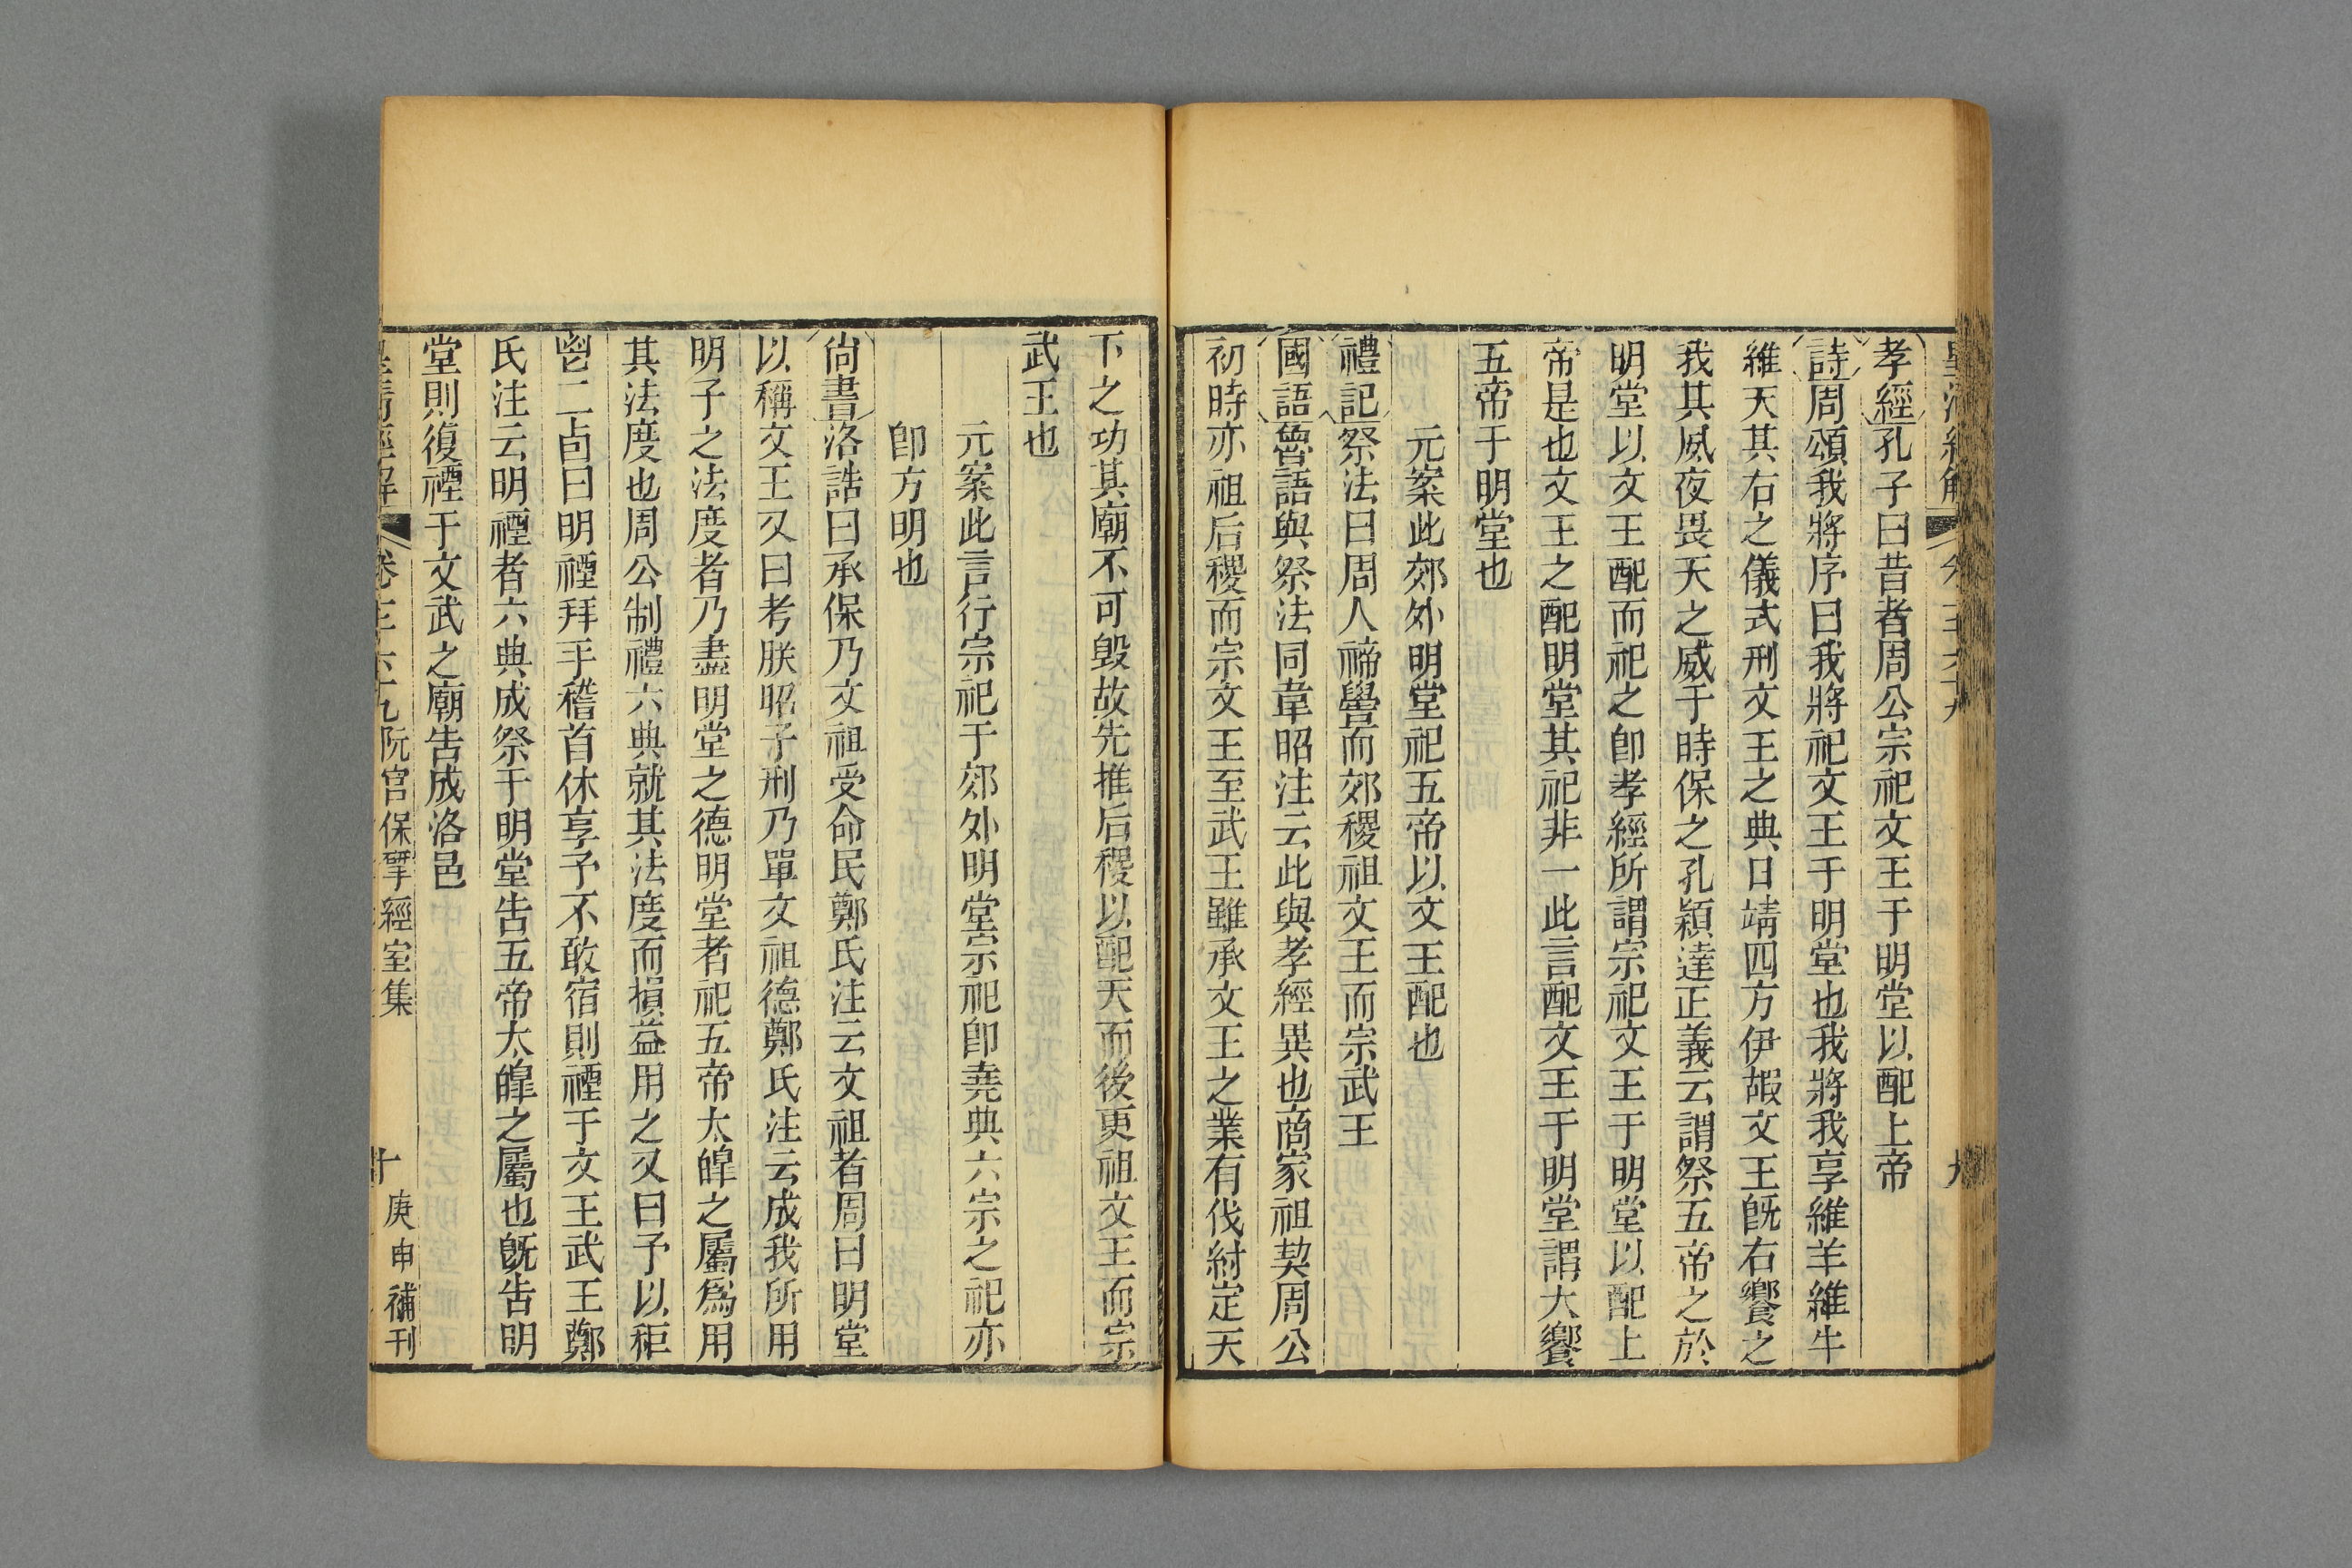 孝經孔子曰昔者周公宗祀文王于明堂以配上帝
詩周頌我將序曰我將祀文王于明堂也我將我享維羊維牛
維天其右之儀式刑文王之典日靖四方伊嘏文王旣右饗之
我其夙夜畏天之威于時保之孔穎達正義云謂祭五帝之於
明堂以文王配而祀之卽孝經所謂宗祀文王于明堂以配上
帝是也文王之配明堂其祀非一此言配文王于明堂謂大饗
五帝于明堂也
元案此郊外明堂祀五帝以文王配也
禮記祭法曰周人禘嚳而郊稷祖文王而宗武王
國語魯語與祭法同韋昭注云此與孝經異也商家祖契周公
初時亦祖后稷而宗文王至武王雖承文王之業有伐紂定天
下之功其廟不可毀故先推后稷以配天而後更祖文王而宗
武王也
元案此言行宗祀于郊外明堂宗祀卽堯典六宗之祀亦
卽方明也
尙書洛誥曰承保乃文祖受命民鄭氏注云文祖者周曰明堂
以稱文王又曰考朕昭子刑乃單文祖德鄭氏注云成我所用
明子之法度者乃盡明堂之德明堂者祀五帝太皞之屬爲用
其法度也周公制禮六典就其法度而損益用之又曰予以秬
鬯二卣曰明禋拜手稽首休享予不敢宿則禋于文王武王鄭
氏注云明禋者六典成祭于明堂告五帝太皞之屬也旣告明
堂則復禋于文武之廟告成洛邑
皇淸經解 卷三六九 阮宮保揅經室集 十 庚申補刊